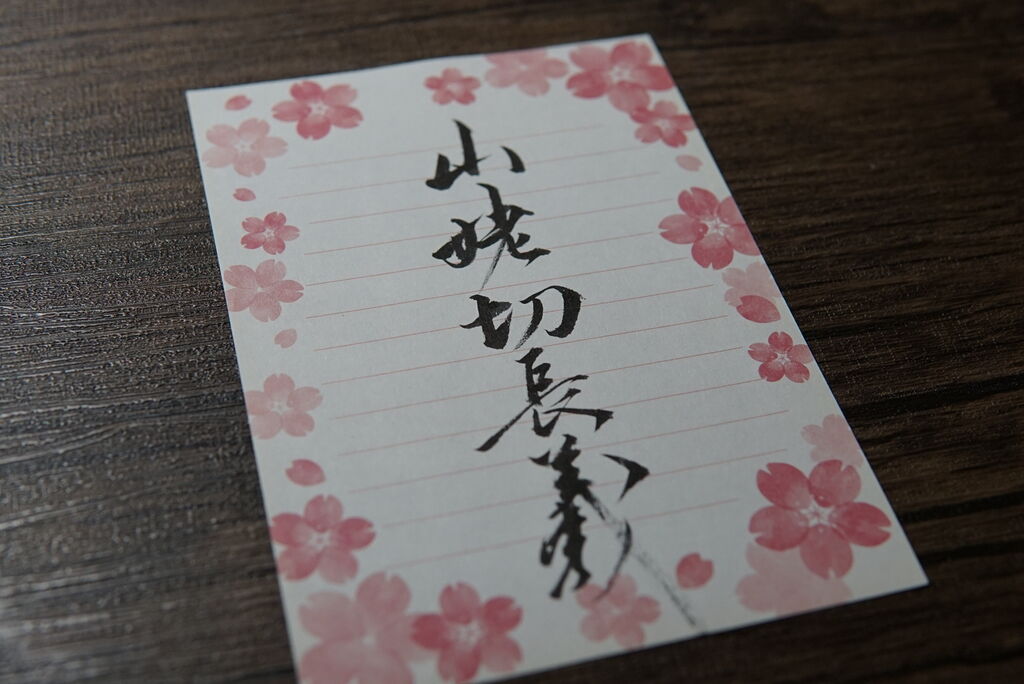 山姥切長義